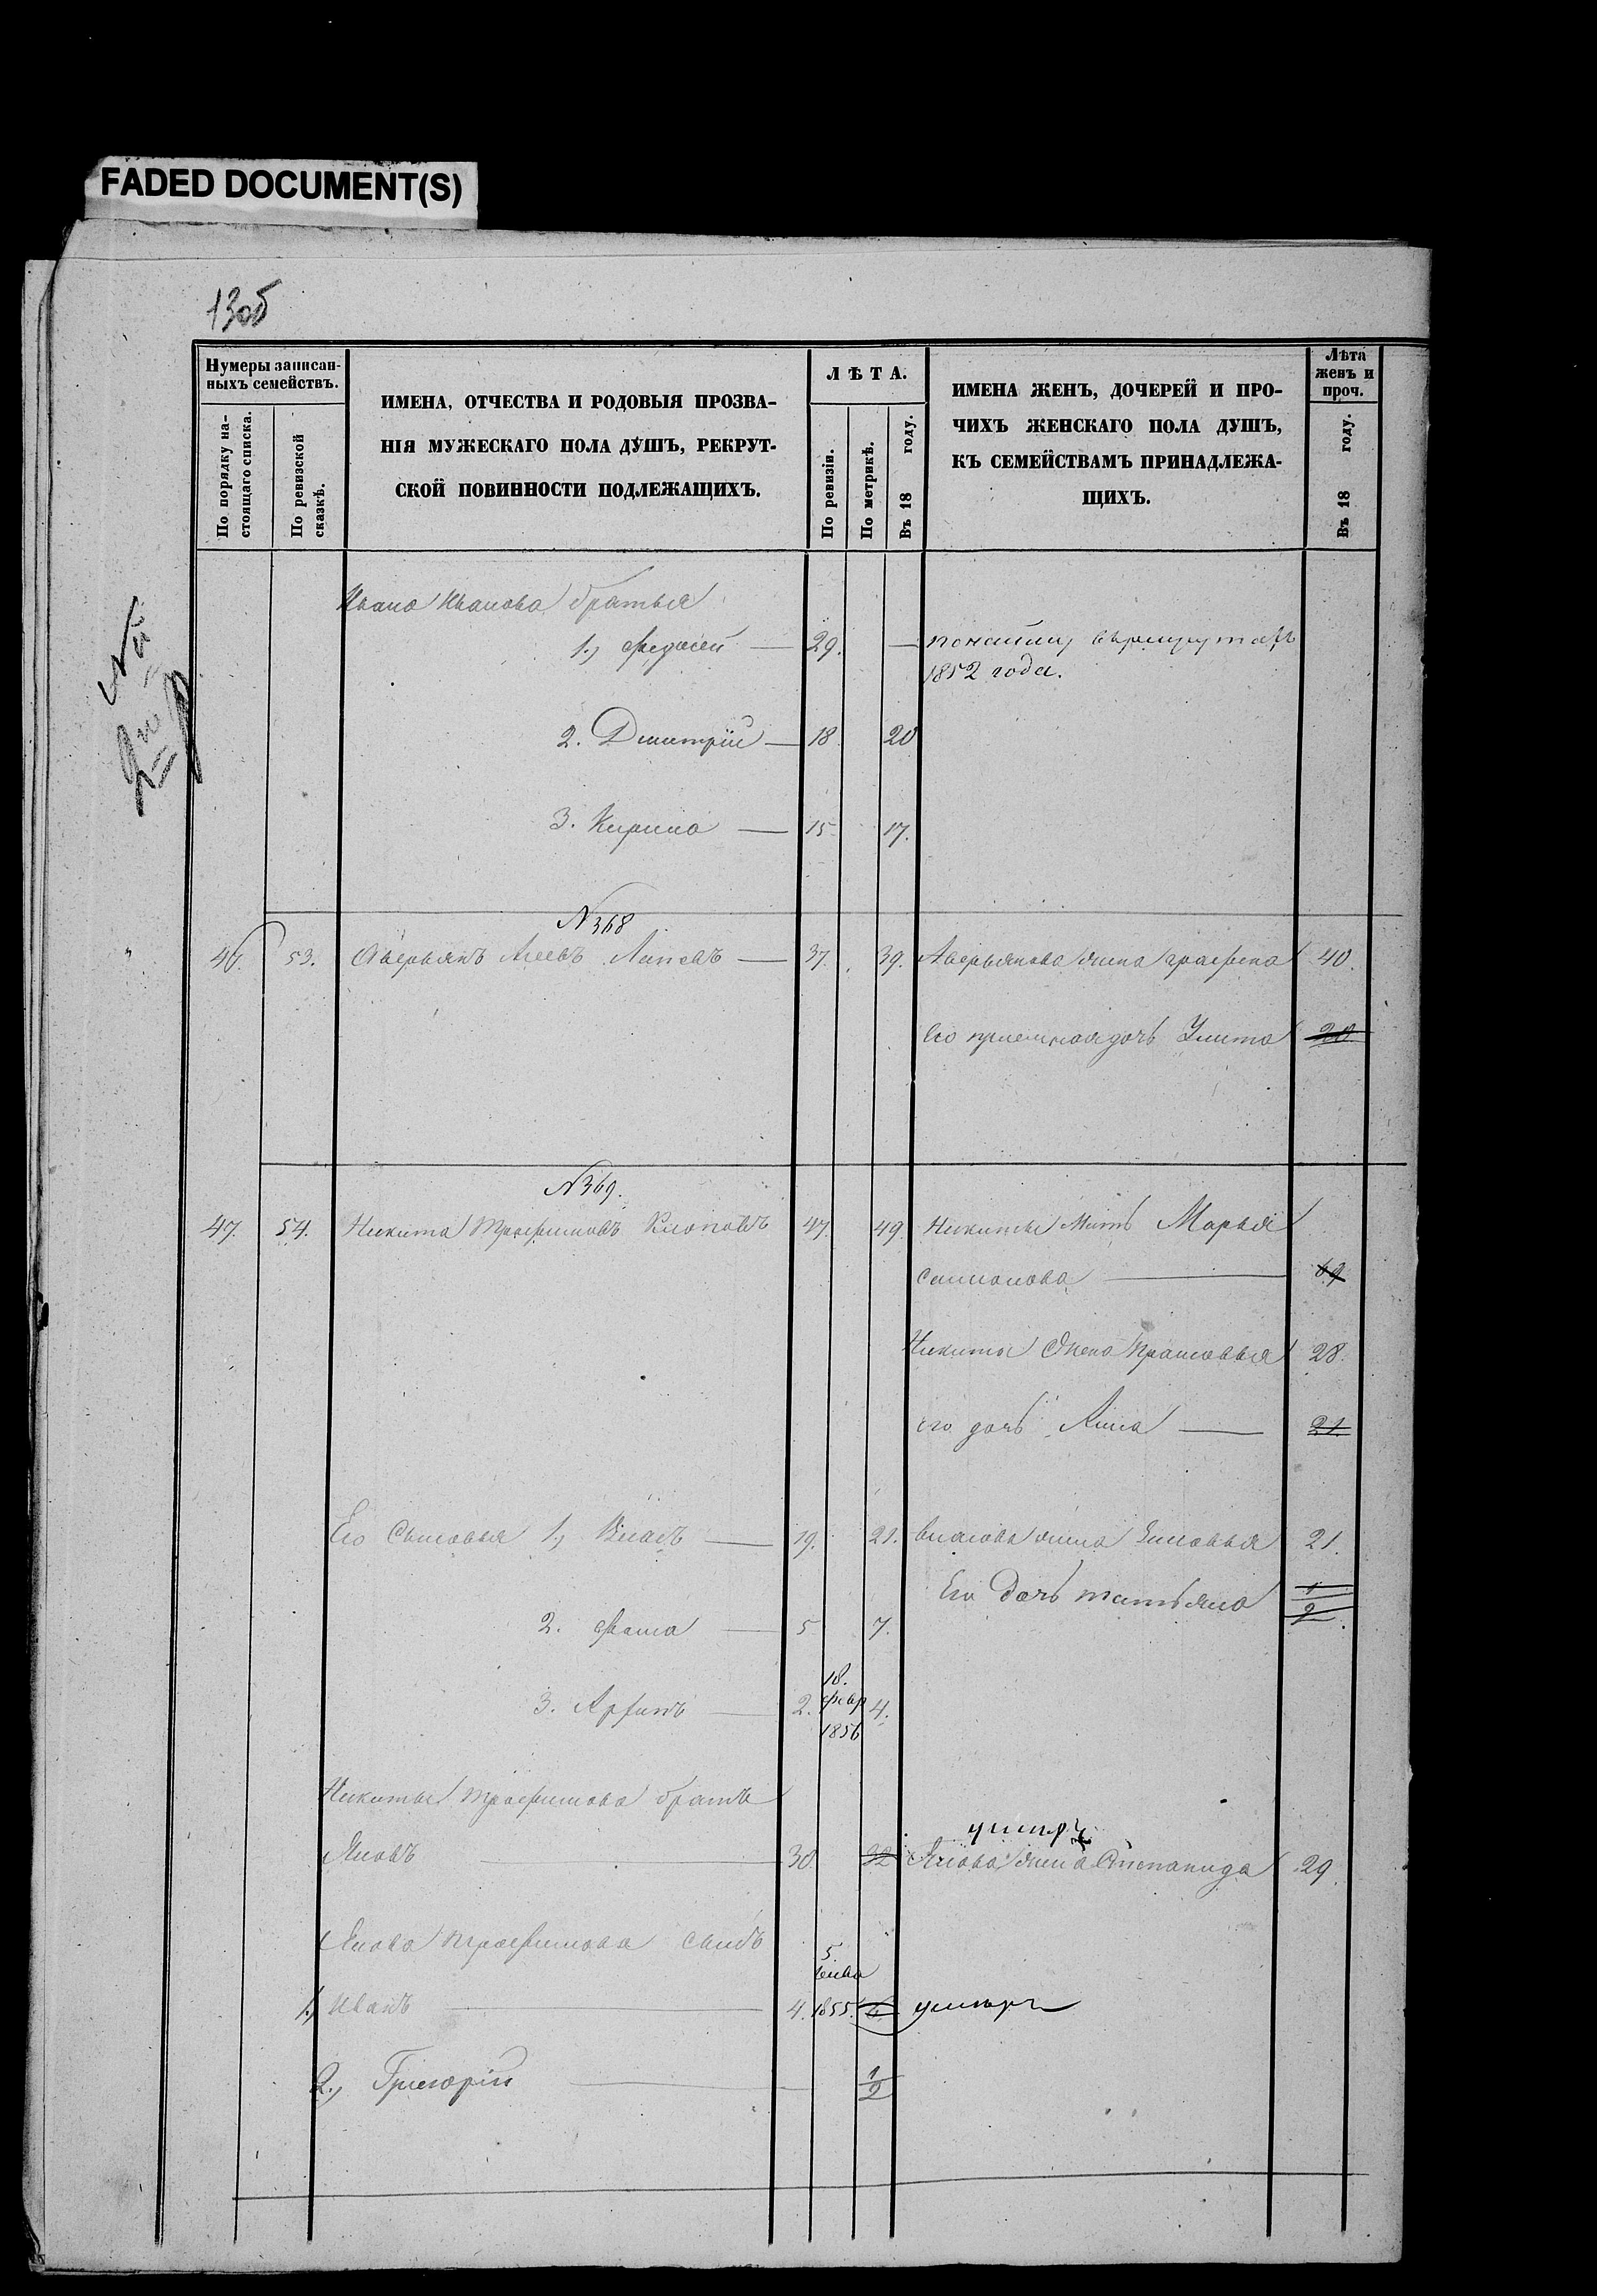 FADED DOCUMENT(S)
130б
Нумеры записан-
ныхъ семействъ.
По порядку на-
стоящаго списка.
По ревизской
сказкѣ.
ИМЕНА, ОТЧЕСТВА И РОДОВЫЯ ПРОЗВА-
НІЯ МУЖЕСКАГО ПОЛА ДУШЪ, РЕКРУТ-
СКОЙ ПОВИННОСТИ ПОДЛЕЖАЩИХЪ.
ЛѢТА.
По ревизіи.
По метрикѣ.
Въ 18 году.
ИМЕНА ЖЕНЪ, ДОЧЕРЕЙ И ПРО-
ЧИХЪ ЖЕНСКАГО ПОЛА ДУШЪ,
КЪ СЕМЕЙСТВАМЪ ПРИНАДЛЕЖА-
ЩИХЪ.
Лѣта
женъ и
проч.
Въ 18 году.
Ивана Иванова братья
1., 29.
1852 года.
2. Дмитрій 18 20
3. Кирила 15 17.
№ 368
46. 53. Аверьянъ 37. 39. Аверьянова жена Графена 40.
Его приемная дочь Улита 20
№ 369.
47. 54. Никита Трофимовъ Клоповъ 47. 49 Никиты Мать Марья
Самсонова 69
Никиты Жена Прасковья 28.
его дочь Анна 21.
Его Сыновья 1., Власъ 19. 21. Власова жена 21.
Его Дочь татьяна 1/2
2. Фома 5 7.
3. 2. 18. февр 1856 4.
Никиты Трофимова братъ
умеръ
Яковъ 30. 32 Якова жена Степанида 29
Якова Трофимова сынъ
5
1., Иванъ 4. 1855. 6 умеръ
2., Григорій 1/2